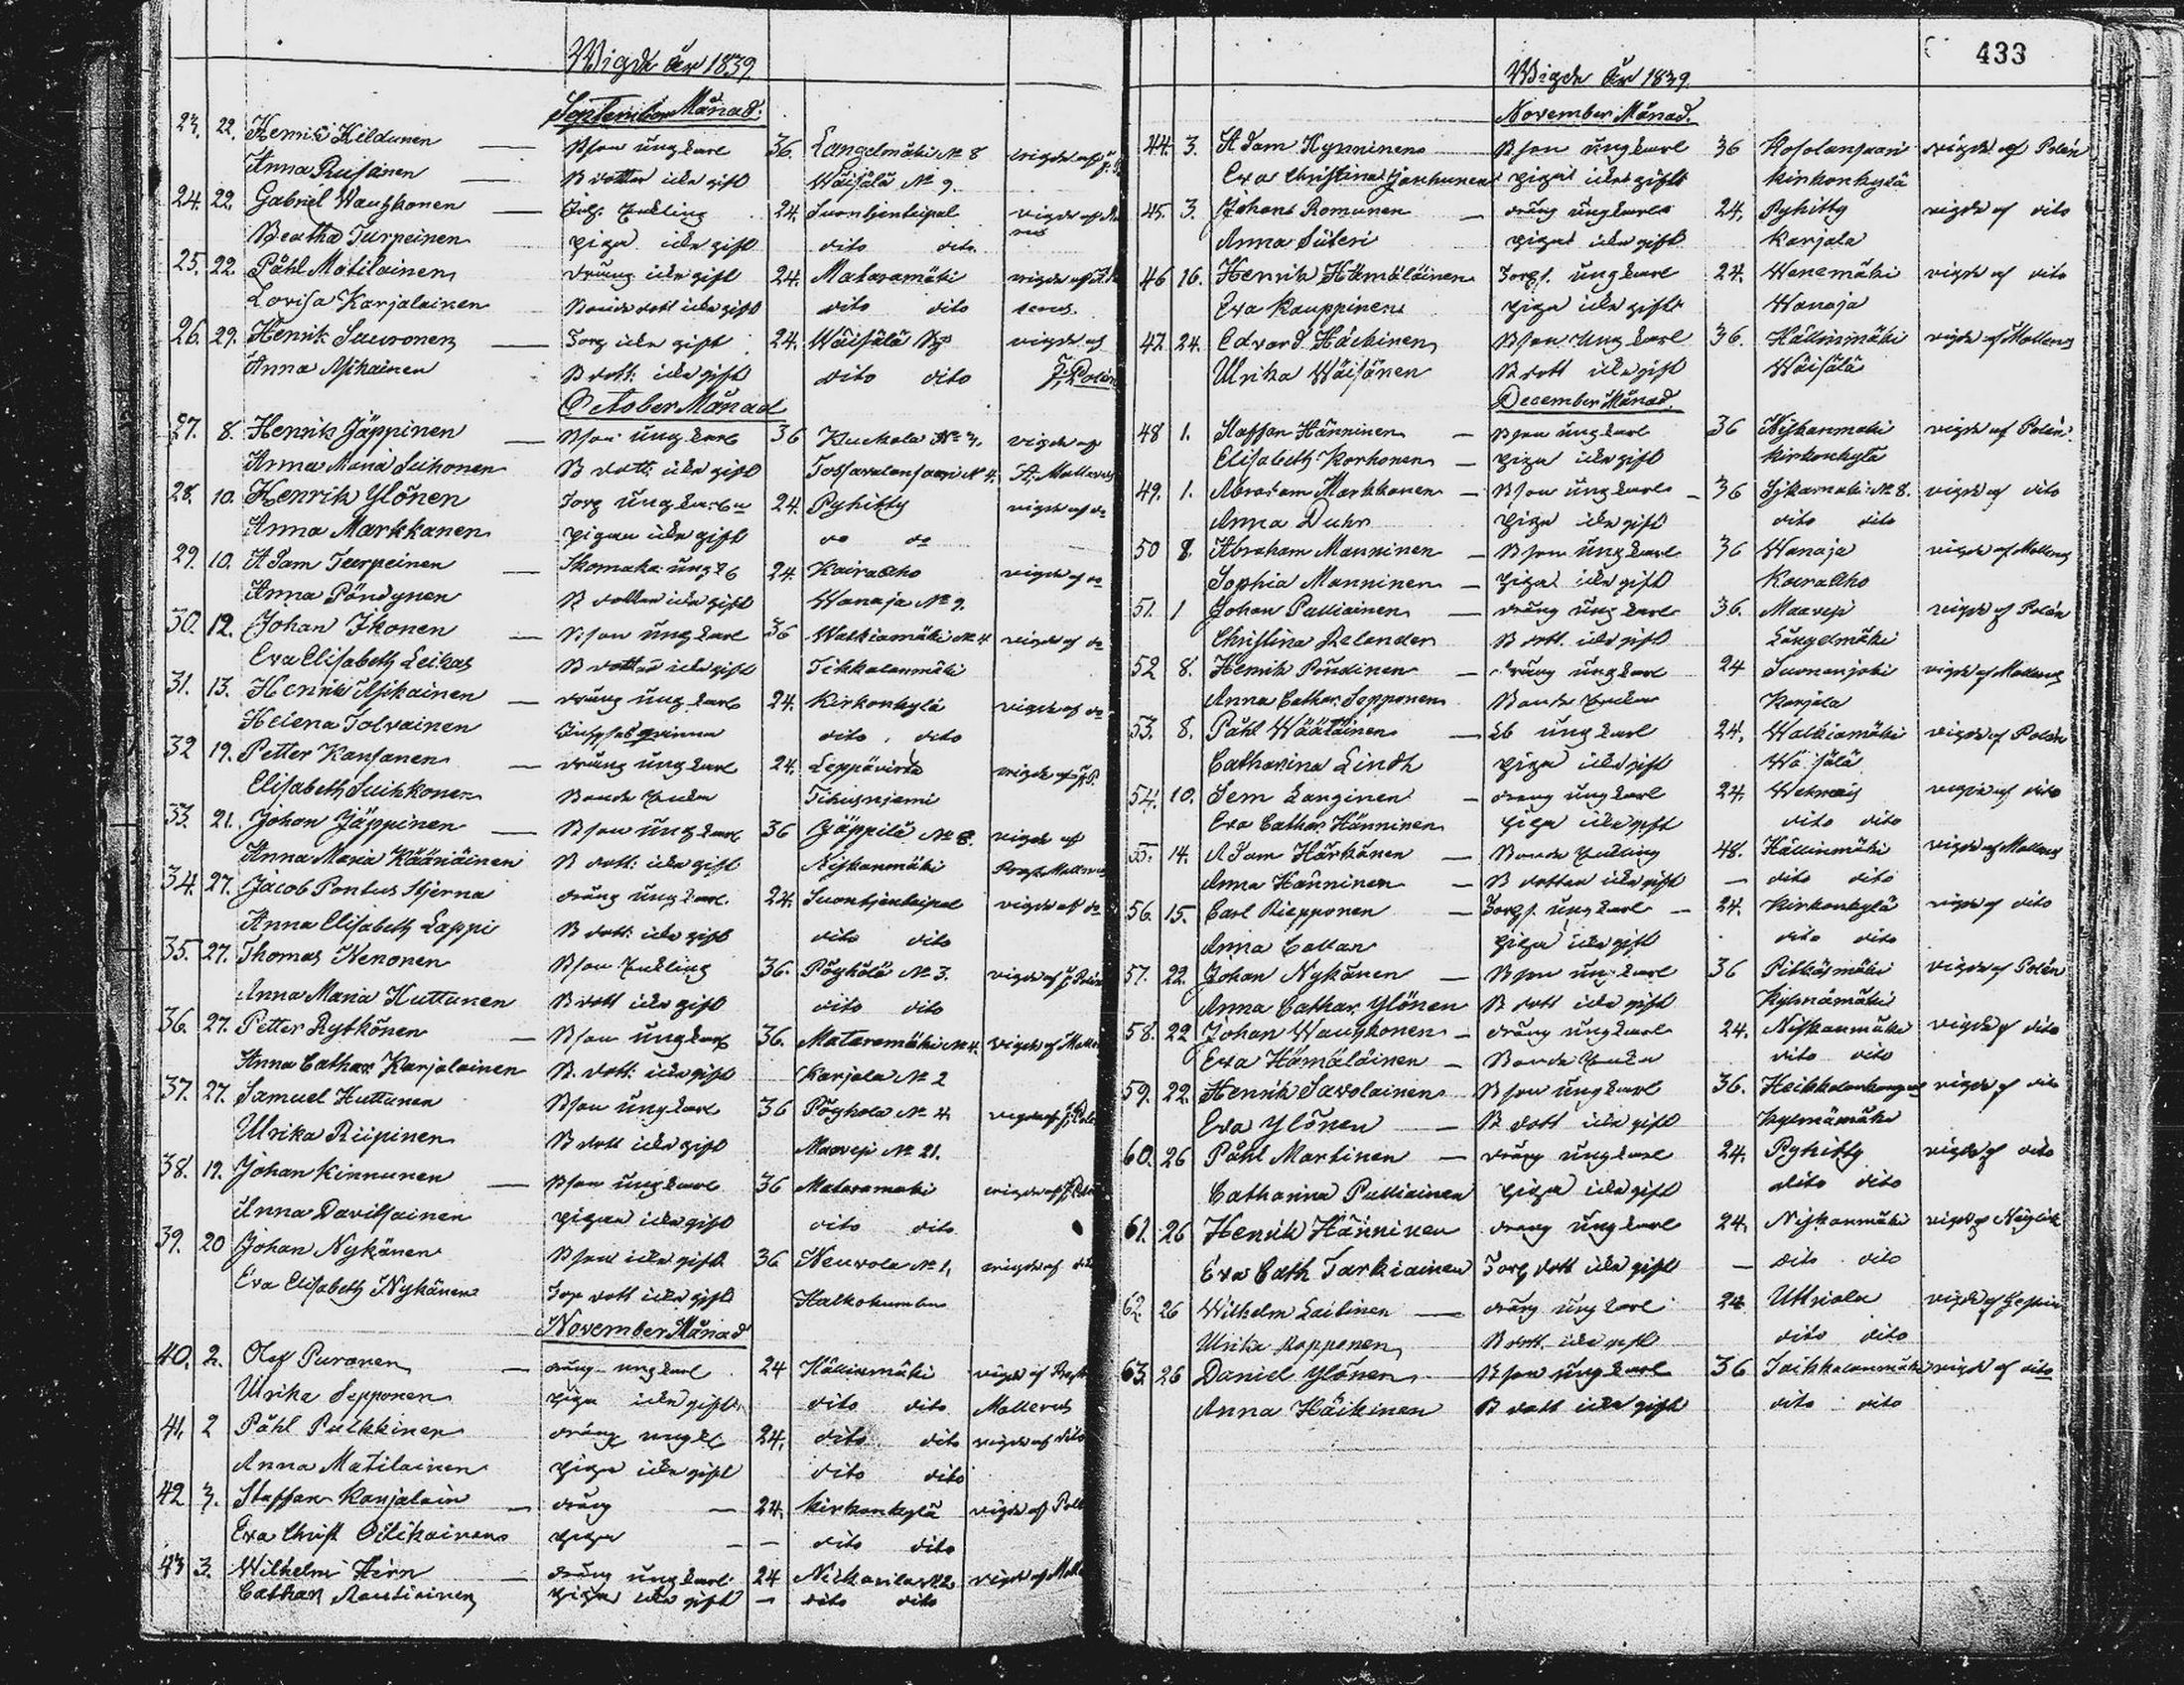 Wigde år 1839
September Månad.
23. 22. Henrik Hildunen — Bson ungkarl 36. Längelmäki № 8 vigde af
Anna Rusanen — B dotter icke gift Wäisälä № 9.
24. 22. Gabriel Wauhkonen — Enkling 24. Suontientaipal vigde af
Beatha Turpeinen piga icke gift dito dito
25. 22. Påhl Matilainen dräng icke gift 24. Mataramäki vigde af
Lovisa Karjalainen Bonde dott icke gift dito dito
26. 29. Henrik Sauronen — Torp icke gift 24. Wäisälä vigde af
Anna Asikainen B dott: icke gift dito dito J. Polén
October Månad
27. 8. Henrik Jäppinen — Bson ungkarl 36 Kuckola № 3. vigde af
Anna Maria Suihonen B dott: icke gift Tossavalansaari № 4. A. Mollerus
28. 10. Henrik Ylönen Torp ungkarl 24. Pyhitty vigde af do
Anna Markkanen pigan icke gift do do
29. 10. Adam Turpeinen — Skomak: ungk 24. Kairaaho vigde af do
Anna Pöndynen B dotter icke gift Wanaja № 9.
30. 12. Johan Ikonen — Bson ungkarl 36 Walkiamäki № 4 vigde af do
Eva Elisabeth Leikas B dotter icke gift Tikkalanmäki
31. 13. Henrik Asikainen — dräng ungkarl 24. Kirkonkylä vigde af do
Helena Tolvainen qvinna dito dito
32 19. Petter Kansanen — dräng ungkarl 24. Leppävirta vigde af
Elisabeth Suihkonen Bonde Enka Tihusniemi
33. 21. Johan Jäppinen — Bson ungkarl 36 Jäppilä № 8. vigde af
Anna Maria Kääriäinen B dott: icke gift Niskanmäki Mollerus
34. 27. Jacob Pontus Stjerna dräng ungkarl. 24. Suontientaipal vigde af do
Anna Elisabeth Lappi B dott: icke gift dito dito
35. 27. Thomas Nenonen Bson Enkling 36. Pöyhölä № 3. vigde af J. Polén
Anna Maria Kuttunen B dott icke gift dito dito
36. 27. Petter Rytkönen — Bson ungkarl 36. Mataramäki № 4. vigde af
Anna Cathar Karjalainen B. dott: icke gift Karjala № 2
37. 27. Samuel Huttunen Bson ungkarl 36 Pöyhölä № 4. vigde af
Ulrika Riipinen B dott icke gift Maavesi № 21.
38. 19. Johan Kinnunen — Bson ungkarl 36 Mataramäki vigde af
Anna Davitsainen pigan icke gift dito dito
39. 20 Johan Nykänen Bson icke gift 36 Neuvola № 1, vigde af
Eva Elisabeth Nykänen Torp dott icke gift Halkokumbu
November Månad
40. 2. Olof Puranen — dräng ungkarl 24 Källinmäki vigde af
Ulrika Sepponen piga icke gift dito dito Mollerus
41, 2 Påhl Pulkkinen dräng ungk 24, dito dito vigde af dito
Anna Matilainen piga icke gift dito dito
42 3. Staffan Karjalain — dräng — 24, Kirkonkylä vigde af
Eva Christ Oitikainen piga — — dito dito
43 3. Wilhelm Hirn — dräng ungkarl 24 vigde af
Cathar Rautiainen piga icke gift — dito dito
433
Wigde år 1839.
November Månad.
44. 3. Adam Hynninen — Bson ungkarl 36 Kosolansaari vigde af Polén
Eva Christina Janhunen piga icke gift Kirkonkylä
45. 3. Johan Romunen — dräng ungkarl 24, Pyhitty vigde af dito
Anna Siiteri piga icke gift Karjala
46 16. Henrik Hämäläinen Torps. ungkarl 24. Wanemäki vigde af dito
Eva Kauppinen piga icke gift Wanaja
47. 24. Edvard Häckinen Bson ungkarl 36. Källinmäki vigde af Mollerus
Ulrika Wäisänen B dott icke gift Wäisälä
December Månad.
48 1. Staffan Hänninen — Bson ungkarl 36 Niskanmäki vigde af Polén
Elisabeth Korhonen — piga icke gift Kirkonkylä
49. 1. Abraham Markkanen — Bson ungkarl — 36 № 8. vigde af dito
Anna Duhr piga icke gift dito dito
50 8. Abraham Manninen — Bson ungkarl 36 Wanaja vigde af Mollerus
Sophia Manninen — piga icke gift Kairaaho
51. 1 Johan Pulliainen — dräng ungkarl 36. Maavesi vigde af Polén
Christina Relander B dott. icke gift Längelmäki
52 8. Henrik Pöndinen — dräng ungkarl 24 Suonanjoki vigde af Mollerus
Anna Cathar. Sepponen Bonde Enka Karjala
53. 8. Påhl Wäätäinen — ungkarl 24, Walkiamäki vigde af Polén
Catharina Lindh piga icke gift Wäisälä
54. 10. Sem Langinen — dräng ungkarl 24. vigde af dito
Eva Cathar. Hänninen piga icke gift dito dito
55. 14. Adam Härkönen — Bonde Enkling 48. Källinmäki vigde af Mollerus
Anna Hänninen — B dotter icke gift — dito dito
56. 15. Carl Riepponen — Torps. ungkarl — 24. Kirkonkylä vigde af dito
Anna Collan piga icke gift dito dito
57. 22. Johan Nykänen — Bson ungkarl 36 Pitkäsmäki vigde af Polén
Anna Cathar. Ylönen B dott icke gift Kylmämäki
58. 22 Johan Wauhkonen — dräng ungkarl 24. Niskanmäki vigde af dito
Eva Hämäläinen — Bonde Enka dito dito
59. 22. Henrik Savolainen Bson ungkarl 36. vigde af dito
Eva Ylönen — B dott icke gift Kylmämäki
60. 26 Påhl Martinen — dräng ungkarl 24. Pyhitty vigde af dito
Catharina Pulliainen piga icke gift dito dito
61. 26 Henrik Hänninen dräng ungkarl 24, Niskanmäki vigde af
Eva Cath Tarkiainen Torp dott icke gift — dito dito
62 26 Wilhelm Laitinen — dräng ungkarl 24 Uttriala vigde af
Ulrika B dott. icke gift dito dito
63. 26 Daniel Ylönen — Bson ungkarl 36 vigde af dito
Anna Häikinen B dott icke gift dito dito